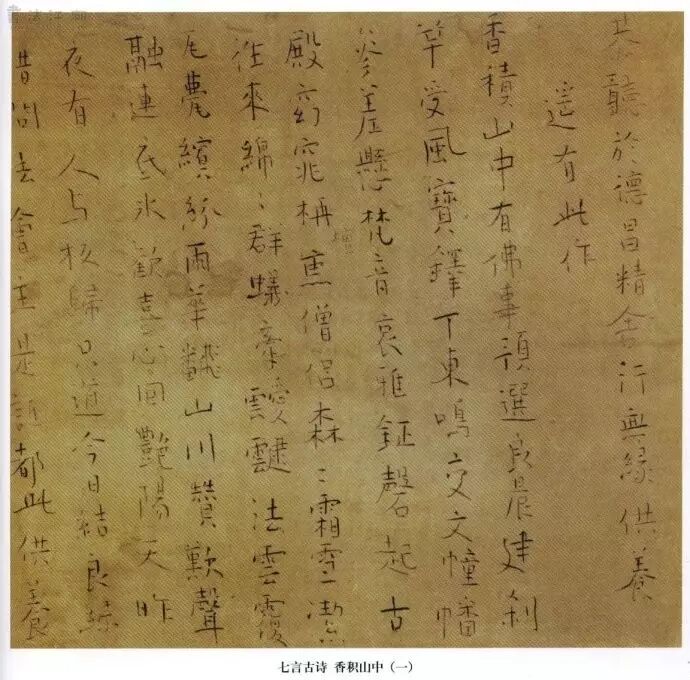 恭聽於德昌精舍行無緣供養
遥有此作
香積山中有佛事預選良晨建刹
竿受風寶鐸丁東鳴交文幢幡
參差懸梵音哀雅鉦磬起古
殿窈窕栴檀熏僧侶森〻霜雪潔
往來綿〻群蟻牽靉靆法雲覆
瓦甍繽紛雨華飜山川贊歎聲
融連底氷歓喜心回艶陽天昨
夜有人与板歸只道今日結良緣
會主是誰都此供養
七言古诗 香积山中（一）